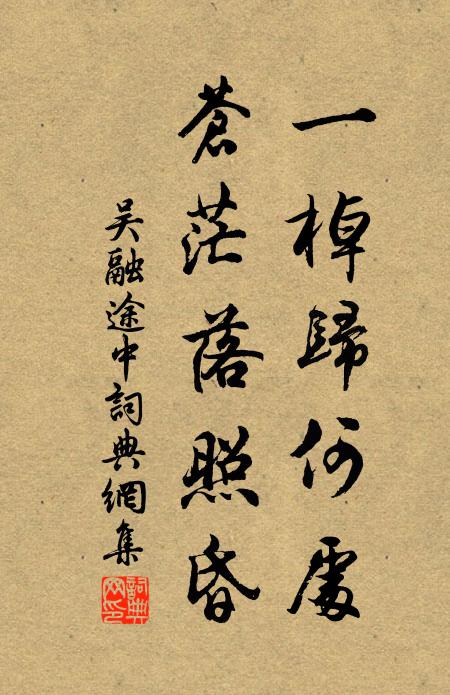 一棹歸何處
蒼茫落照昏
吴融途中詞典網集
詞典網印